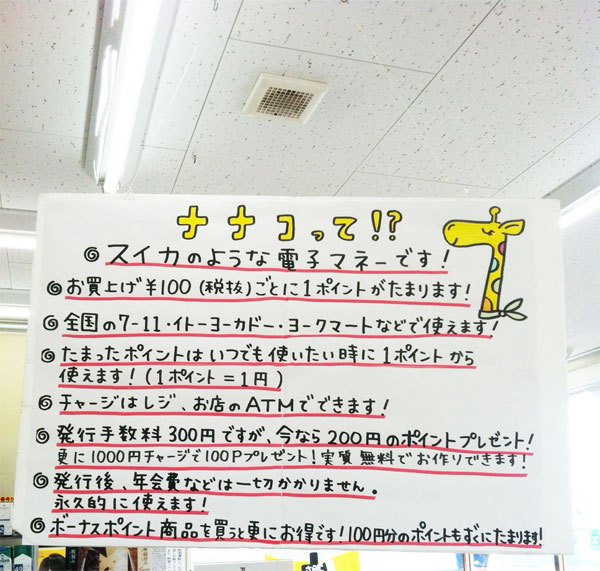 ナナコって!?
スイカのような電子マネーです!
お買上げ¥100(税抜)ごとに1ポイントがたまります!
全国の7-11・イトーヨーカドー・ヨークマートなどで使えます!
たまったポイントはいつでも使いたい時に1ポイントから
使えます!(1ポイント=1円)
チャージはレジ、お店のATMでできます!
発行手数料300円ですが、今なら200円のポイントプレゼント!
更に1000円チャージで100Pプレゼント!実質無料でお作りできます!
発行後、年会費などは一切かかりません。
永久的に使えます!
ボーナスポイント商品を買うと更にお得です!100円分のポイントもすぐにたまります!